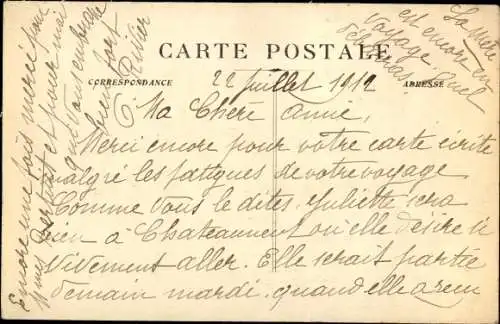 CARTE POSTALE
CORRESPONDANCE
ADRESSE
22 Juillet 1912
Ma Chère Amie,
Merci encore pour votre carte écrite
malgré les fatigues de votre voyage
Comme vous le dites, Juliette sera
bien à Chateauneuf où elle désire si
vivement aller. Elle serait partie
demain mardi, quand elle a reçu
Encore une fois merci pour
Mme et pour moi
vous embrasse
bien fort
La mère
est encore en
voyage quel